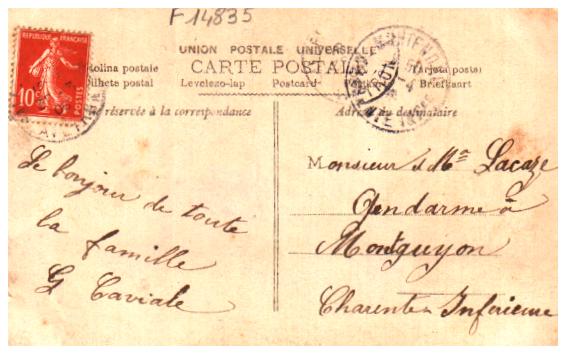 F 14835
REPUBLIQUE FRANÇAISE
10c
POSTES
UNION POSTALE UNIVERSELLE
CARTE POSTALE
tolina postale
Levelezo-lap
Postcard
Briefkaart
réservée à la correspondance
du destinataire
Le bonjour de toute
la famille
G Caviale
Monsieur & Me Lacaze
Gendarme à
Montguyon
Charente Inférieure